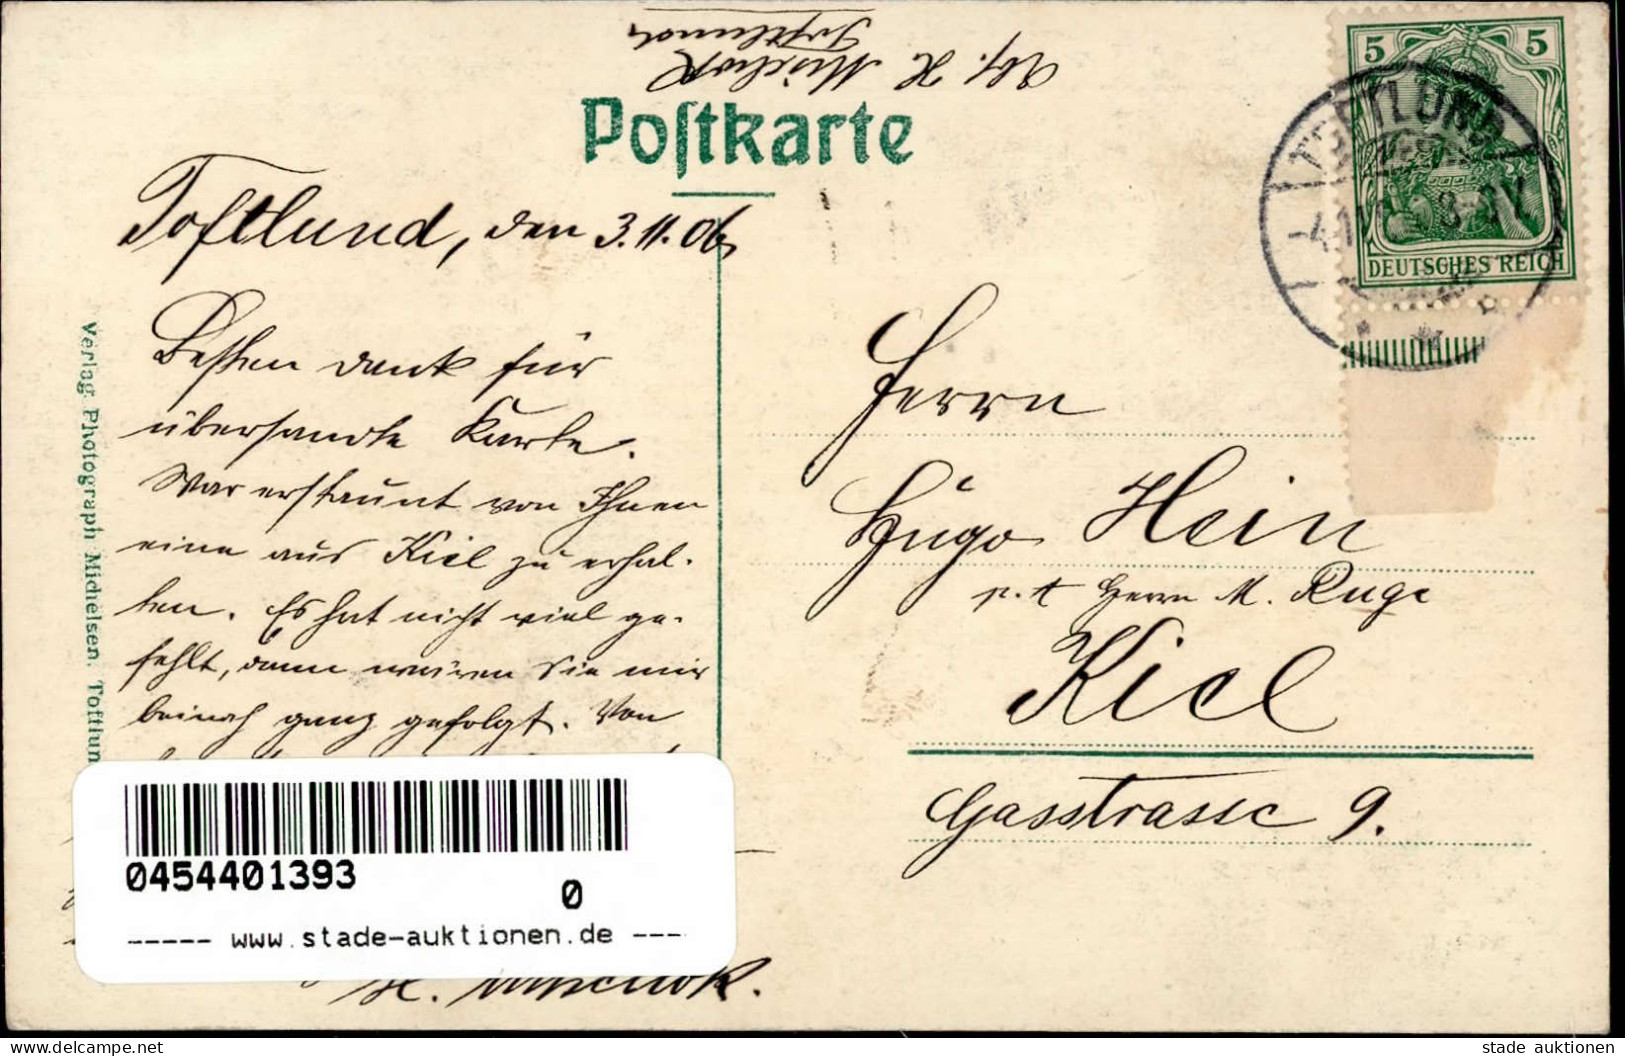 Abs. H. Mischok
Toftlund
Postkarte
5 5
TOFTLUND
DEUTSCHES REICH
Toftlund, den 3.11.06.
Besten Dank für
übersandte Karte.
War erstaunt von Ihnen
eine aus Kiel zu erhal-
ten. Es hat nicht viel ge-
fehlt, dann wären Sie mir
beinah ganz gefolgt. Von
H. Mischok.
Herrn
Hugo Hein
p.t Herrn M. Ruge
Kiel
Gasstrasse 9.
Verlag Photograph Michelsen. Toftlun
0454401393
0
----- www.stade-auktionen.de ---
www.delcampe.net
stade auktionen